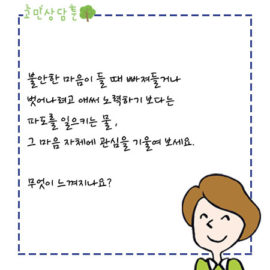 호민상담톡
불안한 마음이 들 때 빠져들거나
벗어나려고 애써 노력하기 보다는
파도를 일으키는 물,
그 마음 자체에 관심을 기울여 보세요.
무엇이 느껴지나요?